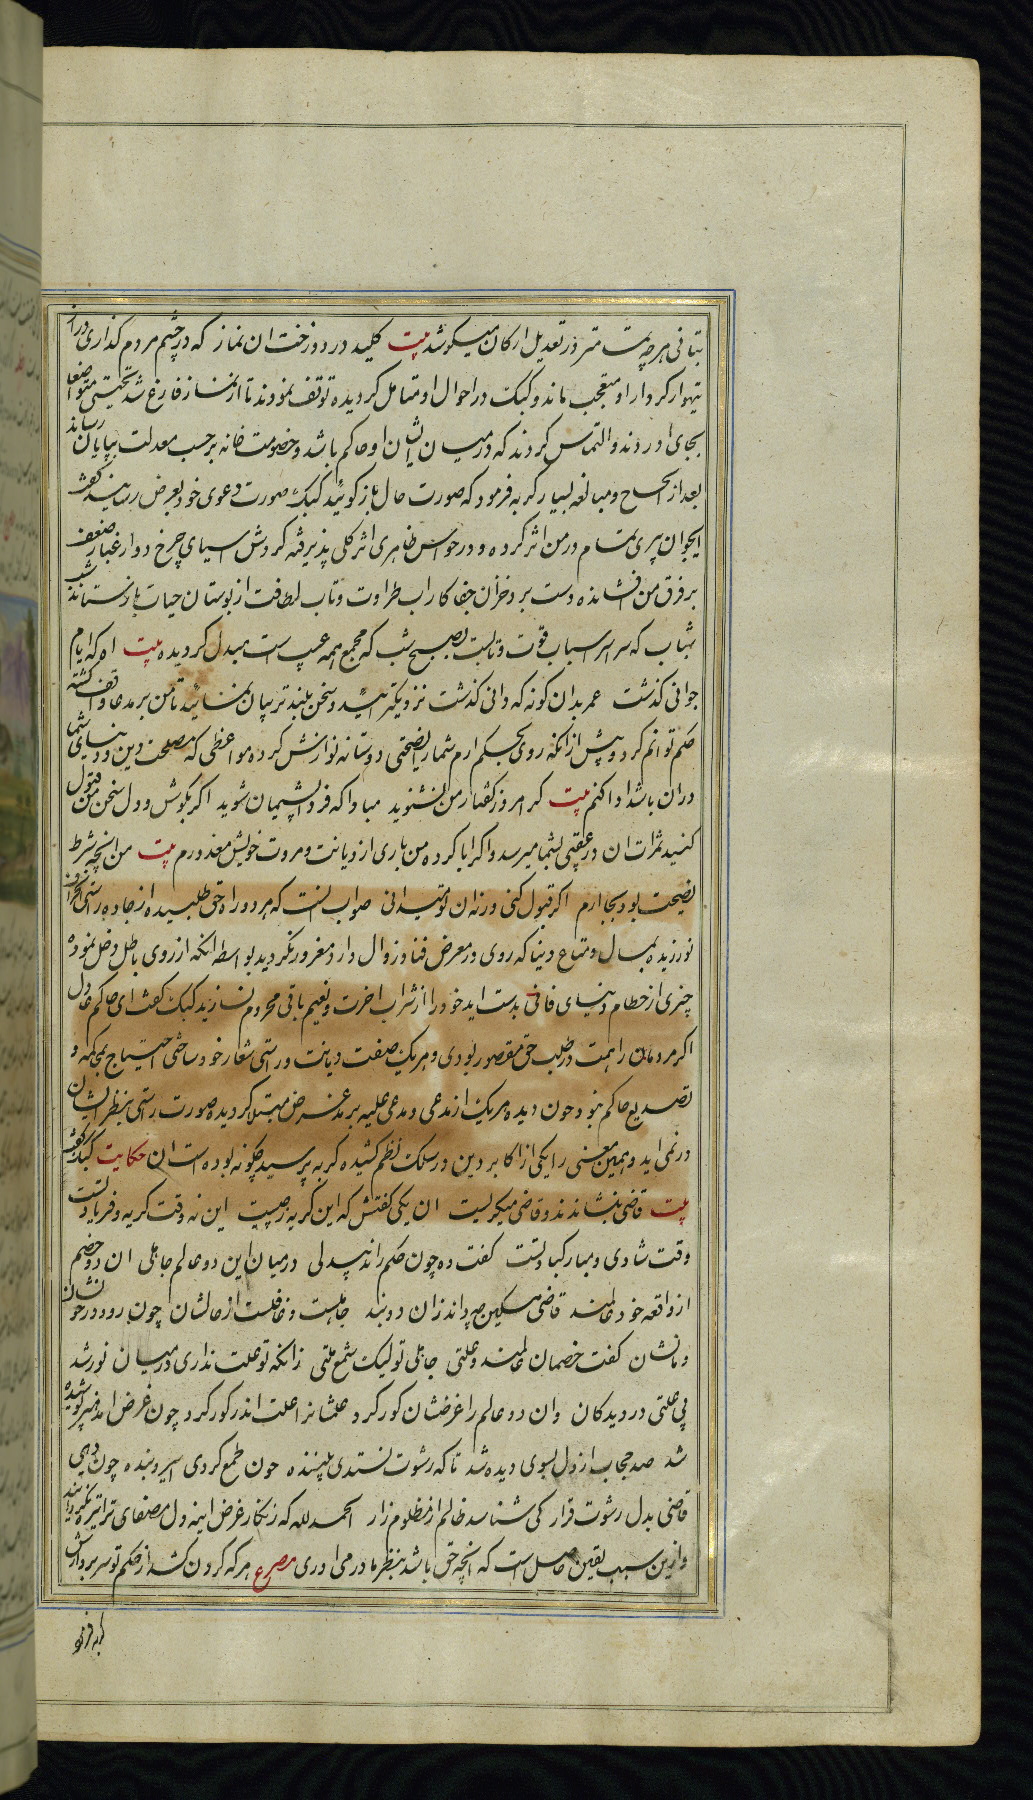 بتانی هرچه تمامتر در تعدیل ارکان میکوشد بیت کلید در دوزخست ان نماز که در چشم مردم کذاری دراز
تیهو از کردار او متعجب ماند و کبک در احوال او متامل کردیده توقف نمودند تا از نماز فارغ شد تحیتی متواضعا
بجای اوردند و التماس کردند که در میان ایشان او حاکم باشد و خصومت خانه بر حسب معدلت بپایان رساند
بعد از الحاح و مبالغه بسیار کربه فرمود که صورت حال باز کوئید کبک صورت دعوی خود بعرض رسانید کفت
ایجوان پیری تمام در من اثر کرده و در حواس ظاهری اثر کلی پذیرفته کردش اسیای چرخ دوار غبار ضعف
بر فرق من افشانده و دست برد خزان جفا کار اب طراوت و تاب لطافت از بوستان حیات باز ستانده شب
شباب که سراسر اسباب قوت و تابست بصبح شیب که مجمع همه عیب است مبدل کردیده بیت اه که ایام
جوانی کذشت عمر بدان کونه که دانی کذشت نزدیکتر ائید و سخن بلندتر بیان نمائید تا من بر مدعا واقف کشته
حکم توانم کرد و پیش از انکه روی بحکم ارم شما را نصیحتی دوستانه نوازش کرده مواعظی که مصلحت دین و دنیای شما
در ان باشد ادا کنم بیت کر امروز کفتار من نشنوید مبادا که فردا پشیمان شوید اکر بکوش و دل سخن من قبول
کنید ثمرات ان در عقبی بشما میرسد و اکر ابا کرده من باری از دیانت و مروت خویش معذورم بیت من انچه شرط
نصیحت بود بجا ارم اکر قبول کنی ور نه ان تو میدانی صواب انست که هر دو راه حق طلبیده از جاده راستی انحراف
نورزیده بمال و متاع دنیا که روی در معرض فنا و زوال دارد مغرور نکردید بواسطه انکه از روی باطل دخل نموده
چیزی از حطام دنیای فانی بدست اید خود را از شراب اخرت و نعیم باقی محروم نسازید کبک کفت ای حاکم عادل
اکر مردمان را همت در طلب حق مقصور بودی و هریک صفت دیانت و راستی شعار خود ساختی احتیاج بمحکمه و
تصدیع حاکم نبود و چون دیده هریک از مدعی و مدعی علیه برمد غرض مبتلا کردیده صورت راستی بنظر ایشان
در نمی اید و همین معنی را یکی از اکابر دین در سلک نظم کشیده کربه پرسید چکونه بوده است ان حکایت کبک کفت
بیت قاضی بنشاندند و قاضی میکریست ان یکی کفتش که این کریه ز چیست این نه وقت کریه و فریاد تست
وقت شادی و مبارکباد تست کفت ده چون حکم راند بیدلی در میان این دو عالم جاهلی ان دو خصم
از واقعه خود عالمند قاضی مسکین چه داند زان دو بند جاهلست و غافلست از حالشان چون رود در خونشان
و مالشان کفت خصمان عالمند و علتی جاهلی تو لیک شمع ملتی زانکه تو علت نداری در میان نور شد
بی علتی در دیدکان وان دو عالم را غرضشان کور کرد علمشانرا علت اندر کور کرد چون غرض امد هنر پوشیده
شد صد حجاب از دل بسوی دیده شد تا که رشوت نستدی بیننده چون طمع کردی اسیر و بنده چون دهی
قاضی بدل رشوت قرار کی شناسد ظالم از مظلوم زار الحمد لله که زنکار غرض اینه دل مصفای ترا تیره نکردانید
و ازین سبب یقین حاصل است که انچه حق باشد بنظر ما در می اوری مصرع هر که کردن کشد از حکم تو سر بر دارش
کربه فرمود